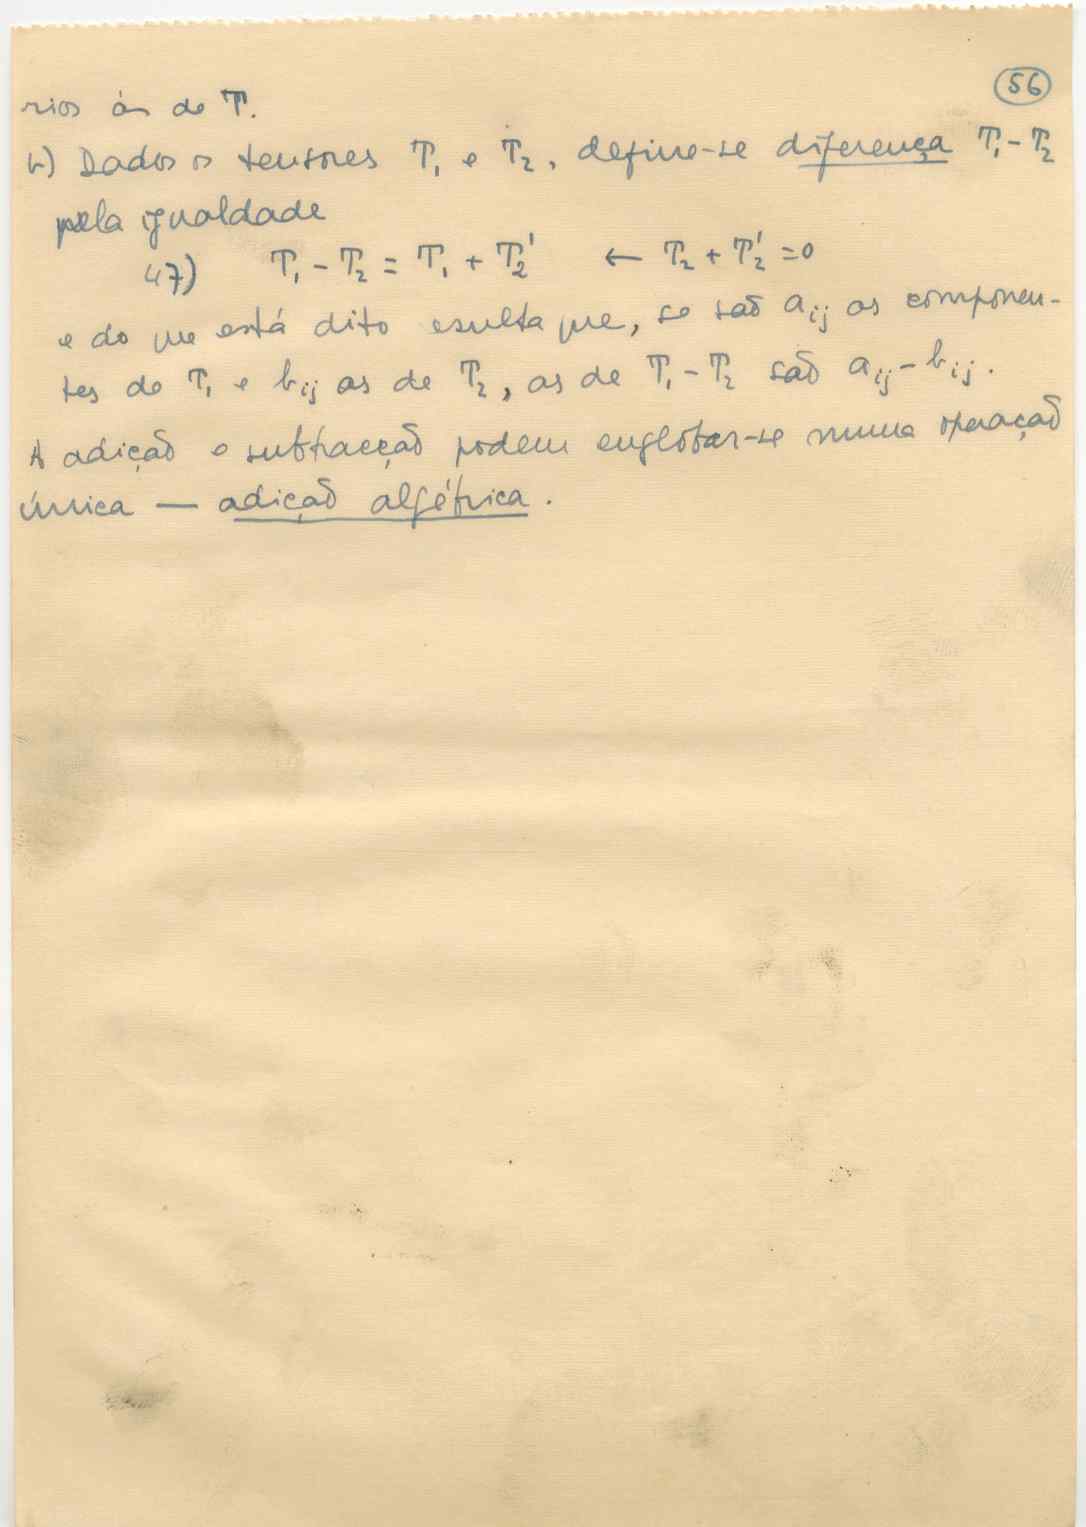 56
rios às de T.
b) Dados os tensores T₁ e T₂, define-se diferença T₁-T₂
pela igualdade
47) T₁ - T₂ = T₁ + T₂' ← T₂ + T₂' = 0
e do que está dito resulta que, se são aᵢⱼ as componen-
tes de T₁ e bᵢⱼ as de T₂, as de T₁ - T₂ são aᵢⱼ - bᵢⱼ.
A adição e subtracção podem englobar-se numa operação
única — adição algébrica.